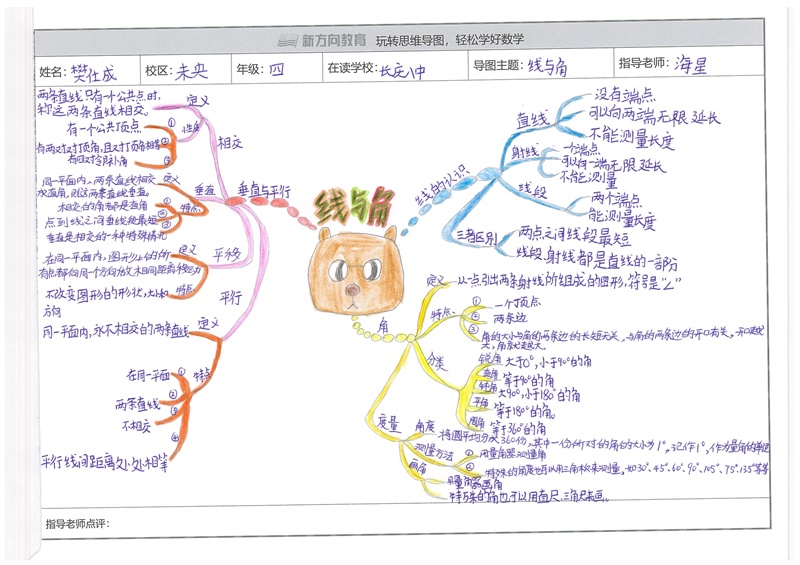 新方向教育 玩转思维导图，轻松学好数学
姓名：樊仕成 校区：未央 年级：四 在读学校：长庆八中 导图主题：线与角 指导老师：海星
线与角
线的认识
直线
没有端点
可以向两端无限延长
不能测量长度
射线
一个端点
可以向一端无限延长
不能测量
线段
两个端点
能测量长度
三者区别
两点之间线段最短
线段、射线都是直线的一部分
角
定义
从一点引出两条射线所组成的图形，符号是"∠"
特点
①
一个顶点
②
两条边
③
角的大小与角的两条边的长短无关，与角的两条边的开口有关，开口越
大，角就越大。
分类
锐角 大于0°，小于90°的角
直角 等于90°的角
钝角 大90°，小于180°的角
平角 等于180°的角。
周角 等于360°的角
度量
角度
将圆平均分成360份，其中一份所对的角的大小为1°，记作1°，作为量角的单位
测量方法
① 用量角器测量角
② 特殊的角度也可以用三角板来测量，如30、45°、60°、90°、105°、75°、135°等等
画角
用量角器画角
特殊的角也可以用直尺、三角尺来画。
垂直与平行
相交
定义
两条直线只有一个公共点时，
称这两条直线相交。
性质
① 有一个公共顶点
② 有两对对顶角，且对顶角相等
③ 有四对邻补角
垂直
定义
同一平面内，两条直线相交
成直角，则这两条直线垂直。
特点
相交的角都是直角
点到线之间垂线段最短
垂直是相交的一种特殊情况
平移
定义
在同一平面内，图形上的所
有点都向同一个方向做相同距离移动
特点
不改变图形的形状，大小和
方向
平行
定义
同一平面内，永不相交的两条直线
特点
① 在同一平面
② 两条直线
③ 不相交
④ 平行线间距离处处相等
指导老师点评：